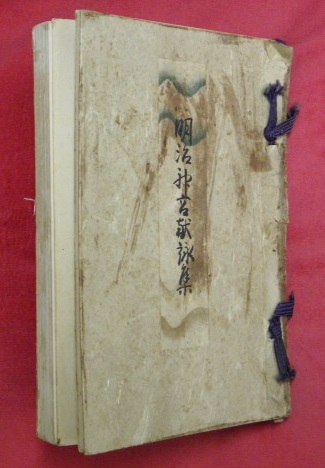 明治神宮献詠集